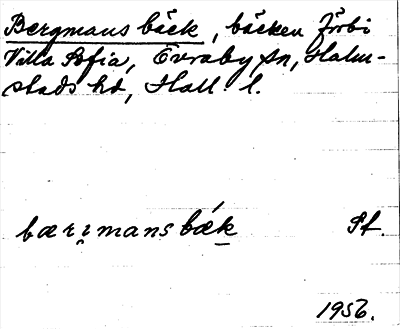 Bergmans bäck, bäcken förbi
Villa Sofia, Övraby sn, Halm-
stads hd, Hall. l.
bærʒmansbǽk St.
1956.